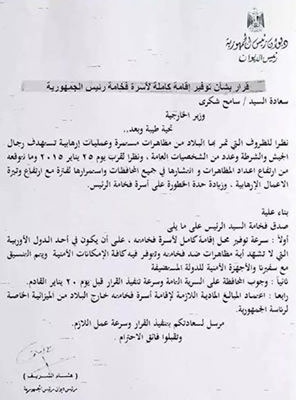 ديوان رئيس الجمهورية
رئيس الديوان
قرار بشأن توفير إقامة كاملة لأسرة فخامة رئيس الجمهورية
سعادة السيد / سامح شكرى
وزير الخارجية
تحية طيبة وبعد..
نظرا للظروف التي تمر بها البلاد من مظاهرات مستمرة وعمليات إرهابية تستهدف رجال
الجيش والشرطة وعدد من الشخصيات العامة ، ونظرا لقرب يوم ٢٥ يناير ٢٠١٥ وما نتوقعه
من ارتفاع اعداد المظاهرات وانتشارها في جميع المحافظات واستمرارها لفترة مع ارتفاع وتيرة
الاعمال الإرهابية ، وزيادة حدة الخطورة على أسرة فخامة الرئيس.
بناء علية
صدق فخامة السيد الرئيس على ما يلى
أولاً : سرعة توفير محل إقامة كاملة لأسرة فخامته ، على أن يكون في أحد الدول الأوربية
التي لا تشهد أية مظاهرات ضد فخامته وتتوفر فيه كافة الإمكانات الأمنية ويتم التنسيق
مع سفيرنا والأجهزة الأمنية للدولة المستضيفة
ثانيا : وجوب المحافظة على السرية التامة وسرعة تنفيذ القرار قبل يوم ٢٠ يناير القادم.
رابعا : اعتماد المبالغ المادية اللازمة لإقامة أسرة فخامته خارج البلاد من الميزانية الخاصة
لرئاسة الجمهورية.
مرسل لسعادتكم بتنفيذ القرار وسرعة عمل اللازم.
وتقبلوا فائق الاحترام
( هشام الشريف )
رئيس ديوان رئيس الجمهورية